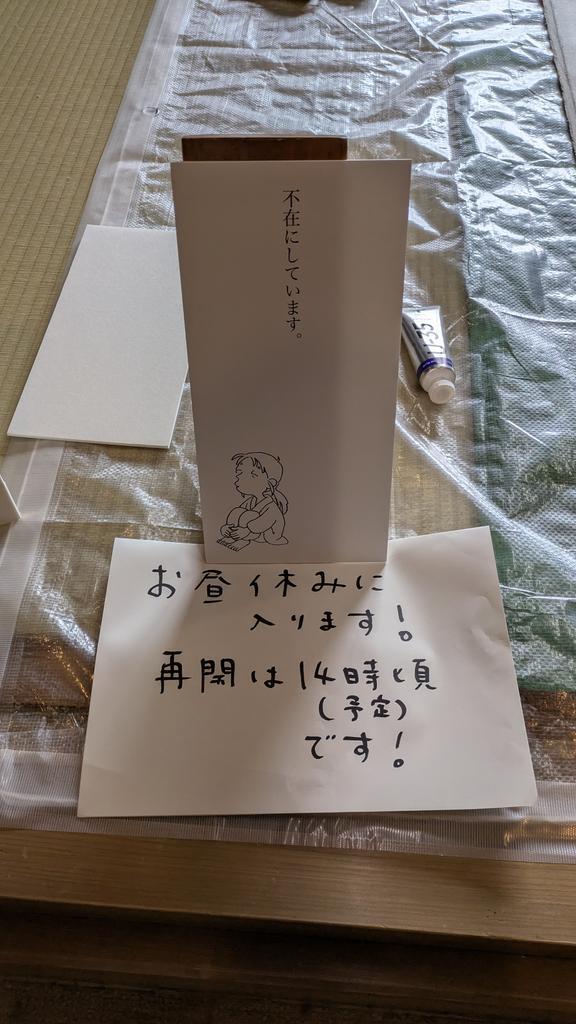 不在にしています。
お昼休みに
入ります!
再開は14時頃
(予定)
です!